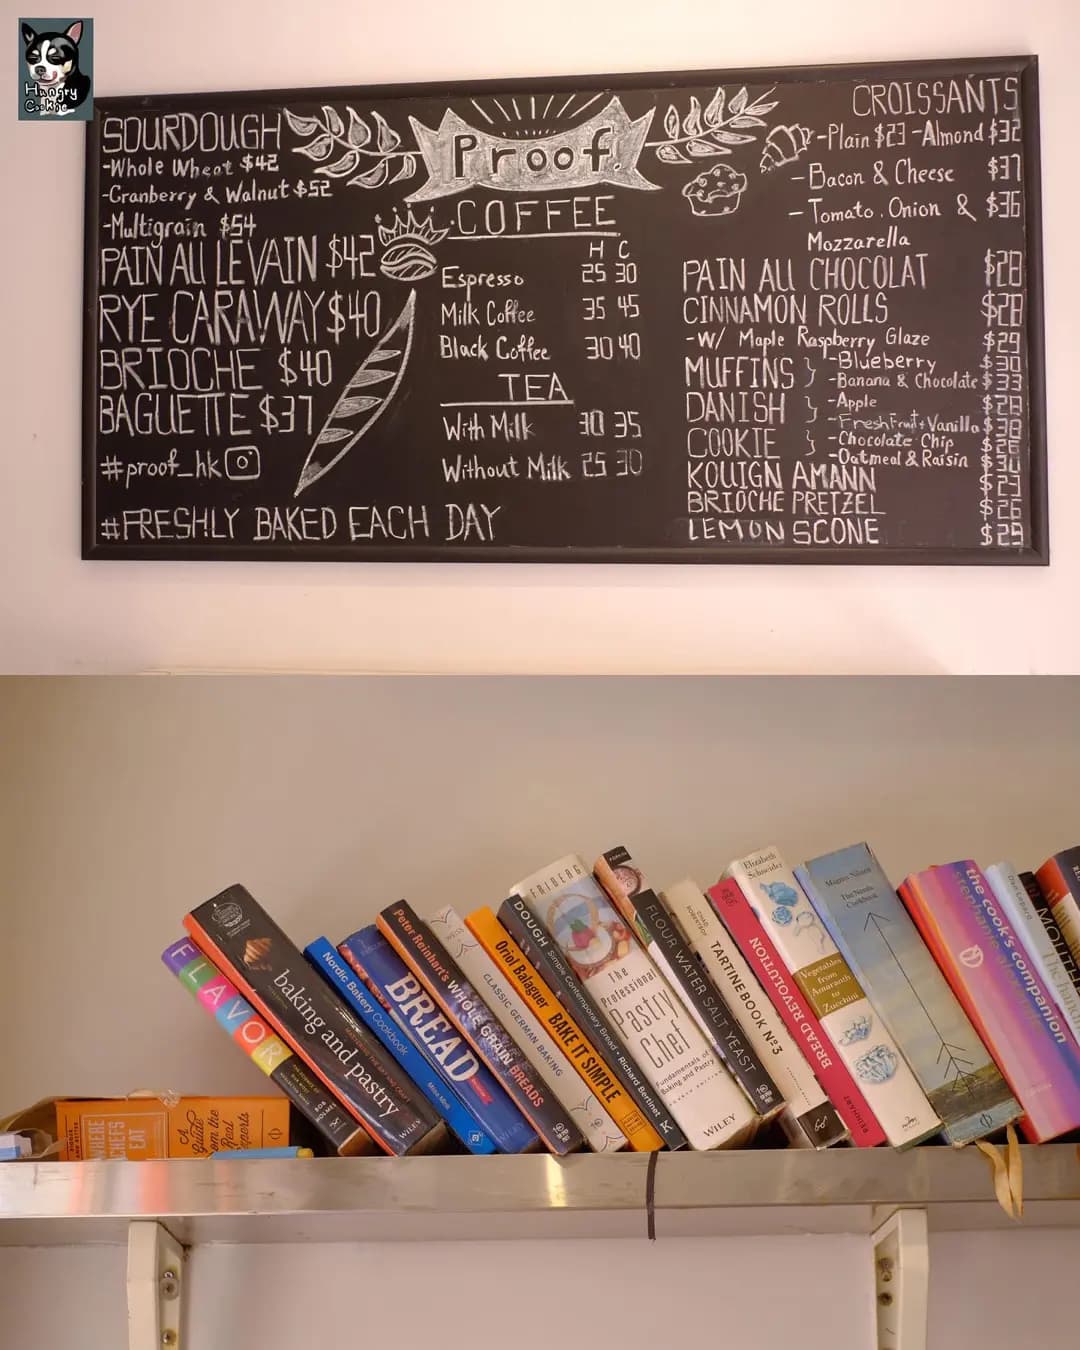 Hungry
Cookie
SOURDOUGH
-Whole Wheat $42
-Cranberry & Walnut $52
-Multigrain $54
PAIN AU LEVAIN $42
RYE CARAWAY $40
BRIOCHE $40
BAGUETTE $37
#proof_hk
#FRESHLY BAKED EACH DAY
Proof.
COFFEE
H C
Espresso 25 30
Milk Coffee 35 45
Black Coffee 30 40
TEA
With Milk 30 35
Without Milk 25 30
CROISSANTS
-Plain $23 -Almond $32
-Bacon & Cheese $37
-Tomato.Onion & $36
Mozzarella
PAIN AU CHOCOLAT $28
CINNAMON ROLLS $28
-W/ Maple Raspberry Glaze $29
MUFFINS } -Blueberry $30
-Banana & Chocolate $33
DANISH } -Apple $28
-Fresh Fruit+Vanilla $38
COOKIE } -Chocolate Chip $26
-Oatmeal & Raisin
KOUIGN AMANN $23
BRIOCHE PRETZEL $26
LEMON SCONE $29
WHERE
CHEFS
EAT
A
Guide
from the
Real
Experts
FLAVOR
BOB HOLMES
baking and pastry
WILEY
Nordic Bakery Cookbook
Miisa Mink
BREAD
Peter Reinhart's WHOLE GRAIN BREADS
WEISS
CLASSIC GERMAN BAKING
Oriol Balaguer BAKE IT SIMPLE
DOUGH Simple Contemporary Bread • Richard Bertinet
K
FRIBERG
The
Professional
Pastry
Chef
Fundamentals of
Baking and Pastry
FOURTH EDITION
WILEY
FLOUR WATER SALT YEAST
CHAD
ROBERTSON
TARTINE BOOK Nº3
BREAD REVOLUTION
REINHART
Elizabeth
Schneider
Vegetables
from
Amaranth
to
Zucchini
Magnus Nilsson
The Nordic
Cookbook
the cook's companion
stephanie
Dan Lepard
The Hand
MOUTH